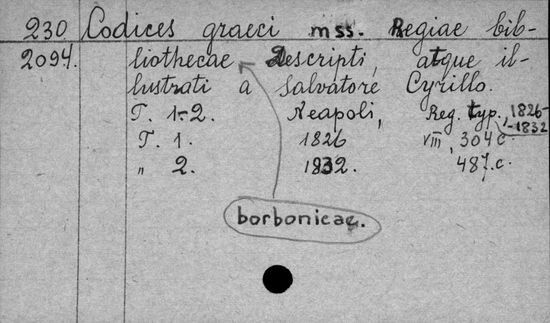 230 Codices graeci mss. Regiae bib-
2094. liothecae Descripti, atque il-
lustrati a Salvatore Cyrillo.
T. 1-2. Neapoli, Reg. typ., 1826-
-1832
T. 1. 1826 VIII, 304 c.
" 2. 1832. 487. c.
borbonicae.